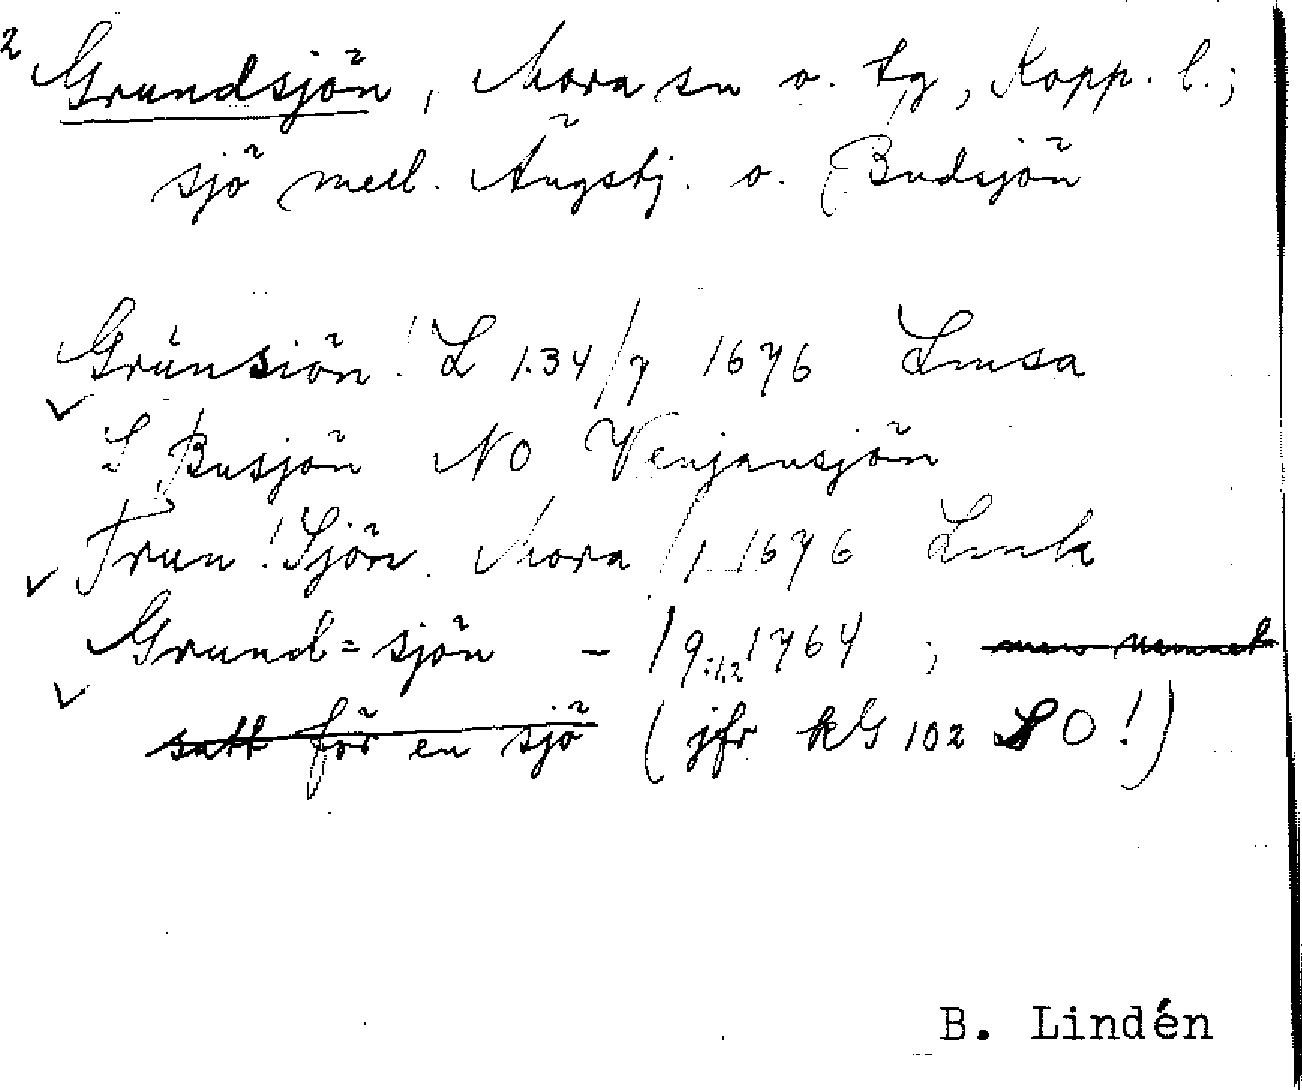 2 Grundsjön, Mora sn o. tg, Kopp. l.;
sjö mell. Ängsbj. o. Budsjön
Grünsiön! L 1.34/7 1676 Lmsa
S Busjön NO Venjansjön
Frun! Sjön. Mora /1 1676 Lmk
Grund=sjön - /9:1,2 1764 ; men namnet
satt för en sjö (jfr kG 102 SO!)
B. Lindén